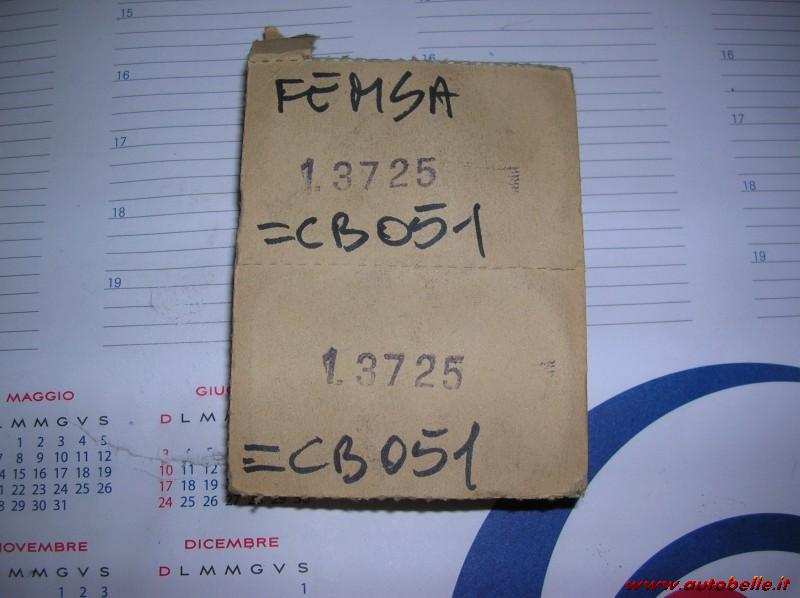 FEMSA
1.3725
=CB051
1.3725
=CB051
15
16
17
18
19
16
17
18
19
MAGGIO
L M M G V S
1 2 3 4 5
7 8 9 10 11 12
14 15 16 17 18 19
21 22 23 24 25 26
28 29 30 31
GIU
D L M M
3
10 11 12
17 18 19
24 25 26
NOVEMBRE
M M G V S
1 2 3
DICEMBRE
D L M M G V S
1
www.autobelle.it